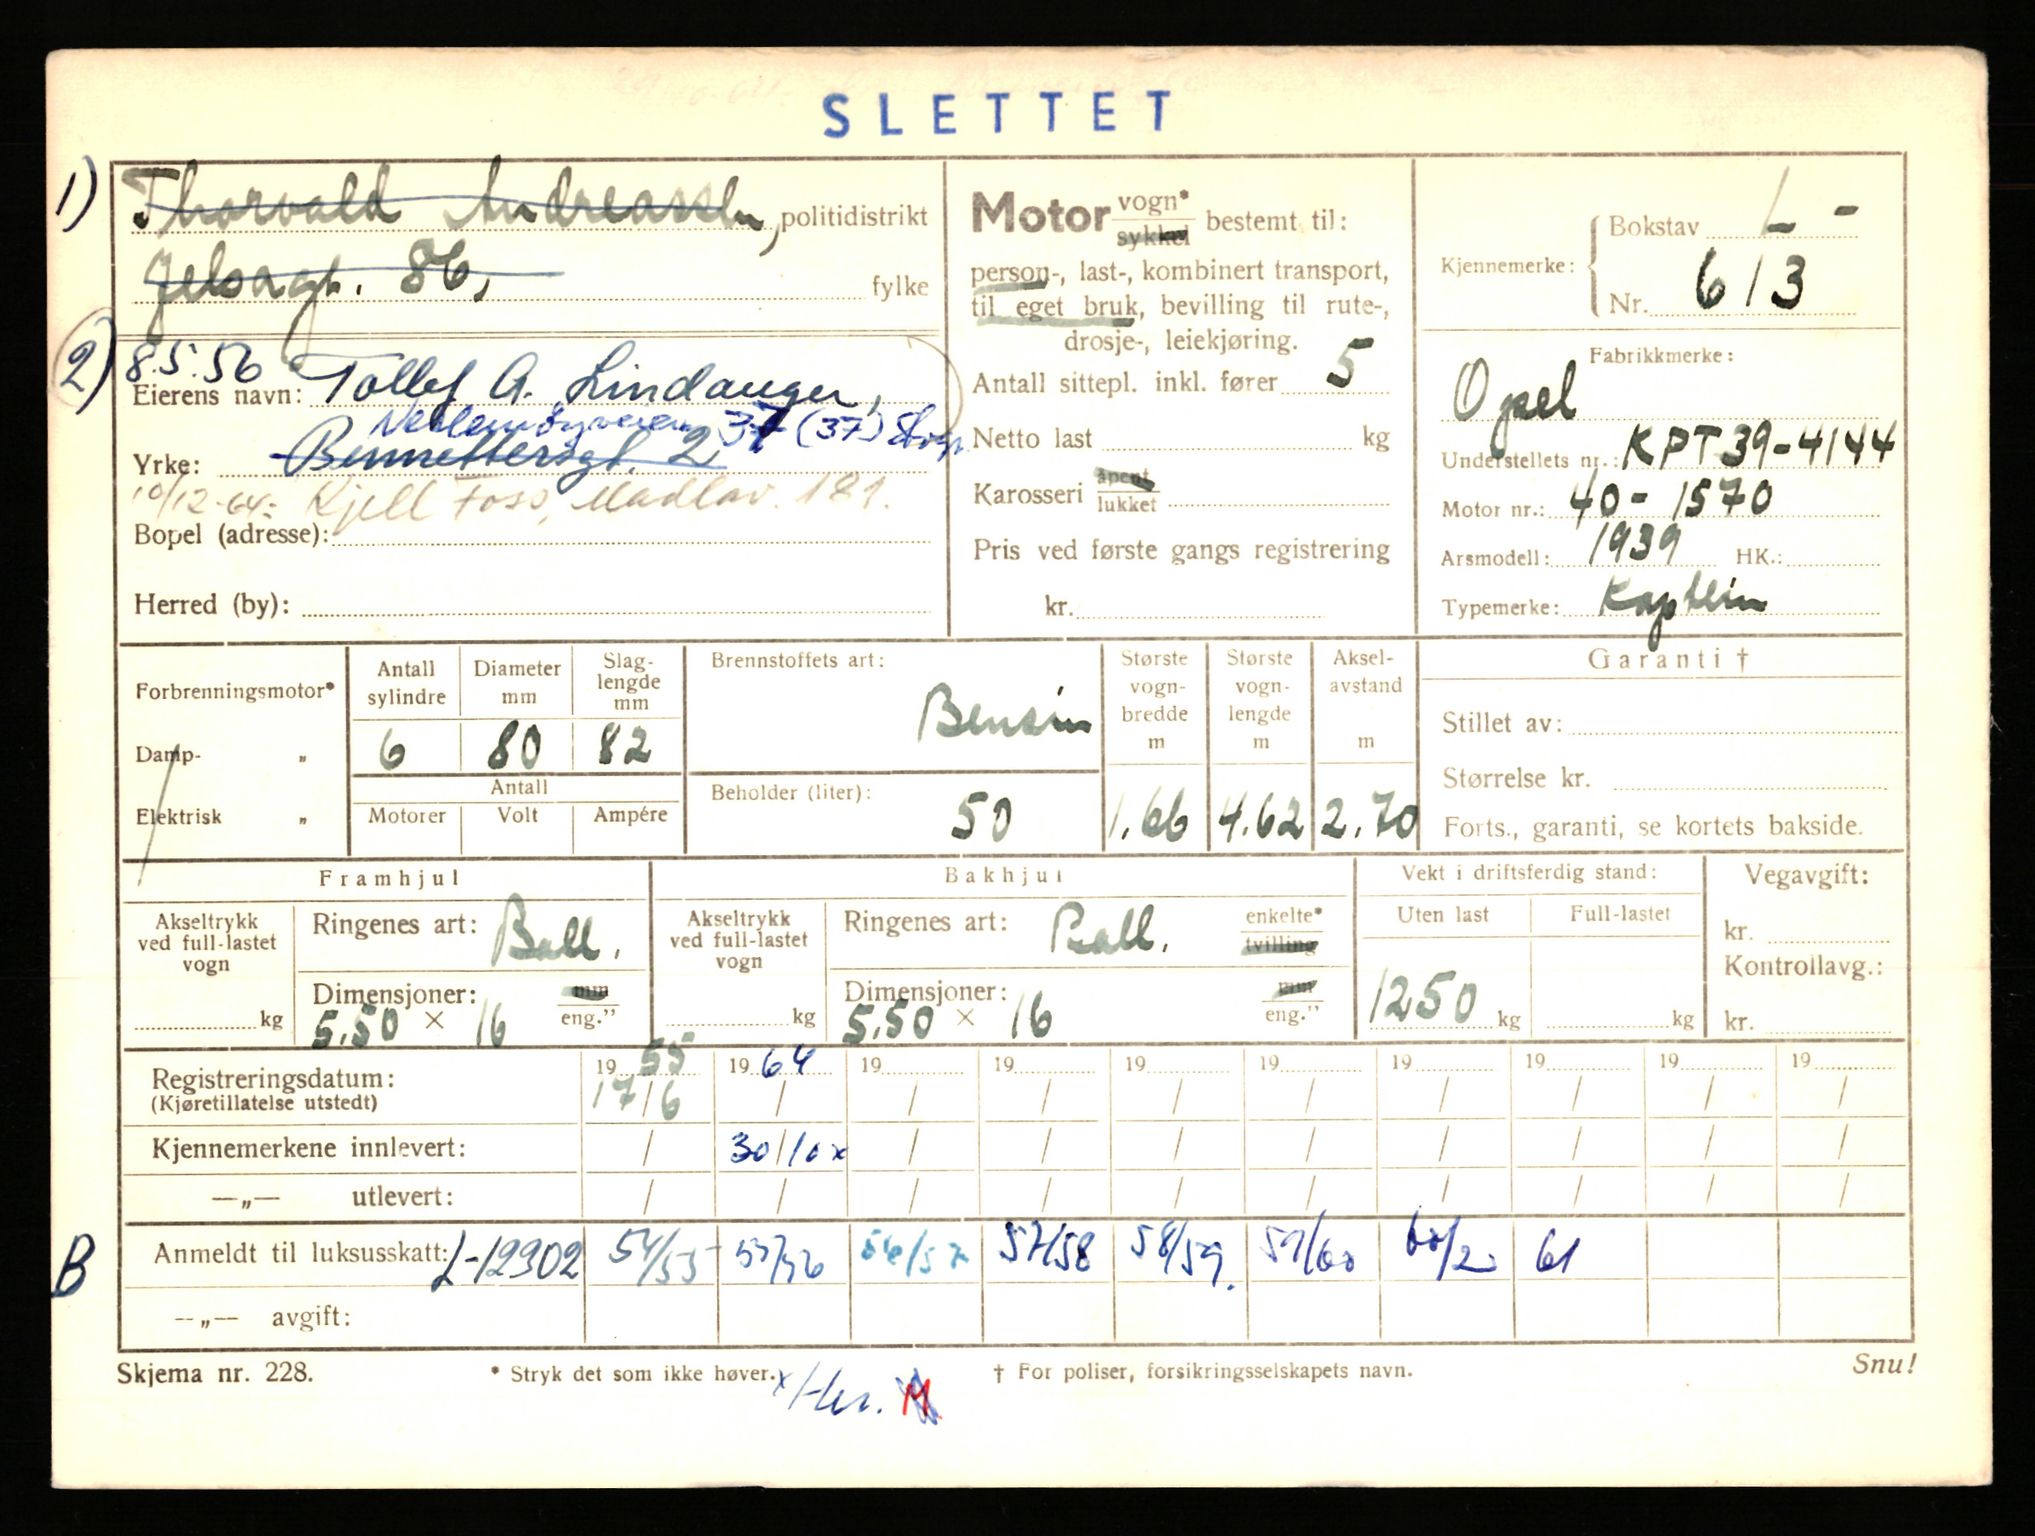 SLETTET
1) Thorvald Andreassen, politidistrikt
Jelsagt. 86, fylke
2) 8.5.56
Eierens navn: Tollef A. Lindanger,
37 (37)
Yrke: Bennettersgt. 2
10/12-64: Kjell Foss, Madlav. 181.
Bopel (adresse):
Herred (by):
Motor vogn* sykkel bestemt til:
person-, last-, kombinert transport,
til eget bruk, bevilling til rute-,
drosje-, leiekjøring.
Antall sittepl. inkl. fører 5
Netto last kg
Karosseri åpent lukket
Pris ved første gangs registrering
kr.
Kjennemerke: Bokstav L-
Nr. 613
Fabrikkmerke:
Opel
Understellets nr.: KPT39-4144
Motor nr.: 40-1570
Arsmodell: 1939 HK.:
Typemerke: Kaptein
Forbrenningsmotor*
Damp- „
Elektrisk „
Antall sylindre Diameter mm Slag-lengde mm
6 80 82
Antall
Motorer Volt Ampére
Brennstoffets art:
Bensin
Beholder (liter):
50
Største vogn-bredde m Største vogn-lengde m Aksel-avstand m
1.66 4.62 2.70
Garanti †
Stillet av:
Størrelse kr.
Forts., garanti, se kortets bakside.
Framhjul
Akseltrykk ved full-lastet vogn
kg
Ringenes art: Ball.
Dimensjoner: mm
5.50 × 16 eng."
Bakhjul
Akseltrykk ved full-lastet vogn
kg
Ringenes art: Ball. enkelte* tvilling
Dimensjoner: mm
5.50 × 16 eng."
Vekt i driftsferdig stand:
Uten last Full-lastet
1250 kg kg
Vegavgift:
kr.
Kontrollavg.:
kr.
Registreringsdatum: 1955 1964 19 19 19 19 19 19 19 19
(Kjøretillatelse utstedt) 17/6 / / / / / / / / /
Kjennemerkene innlevert: / 30/10x / / / / / / / /
—„— utlevert: / / / / / / / / / /
B Anmeldt til luksusskatt: L-12302 54/55 55/56 56/57 57/58 58/59. 59/60 60/2. 61
—„— avgift:
Skjema nr. 228. * Stryk det som ikke høver. † For poliser, forsikringsselskapets navn. Snu!